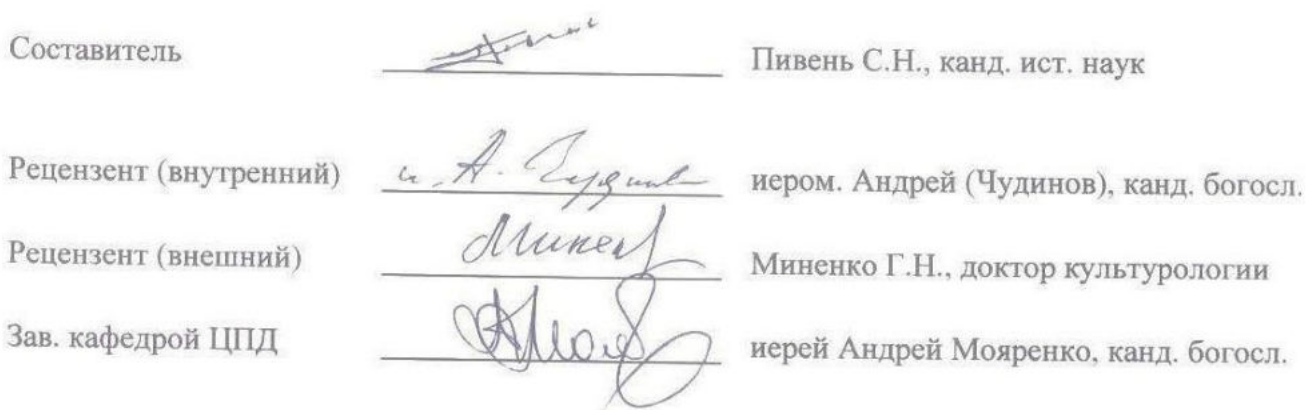 Составитель Пивень С.Н., канд. ист. наук
Рецензент (внутренний) и. А. Чудинов иером. Андрей (Чудинов), канд. богосл.
Рецензент (внешний) Минен Миненко Г.Н., доктор культурологии
Зав. кафедрой ЦПД иерей Андрей Мояренко, канд. богосл.